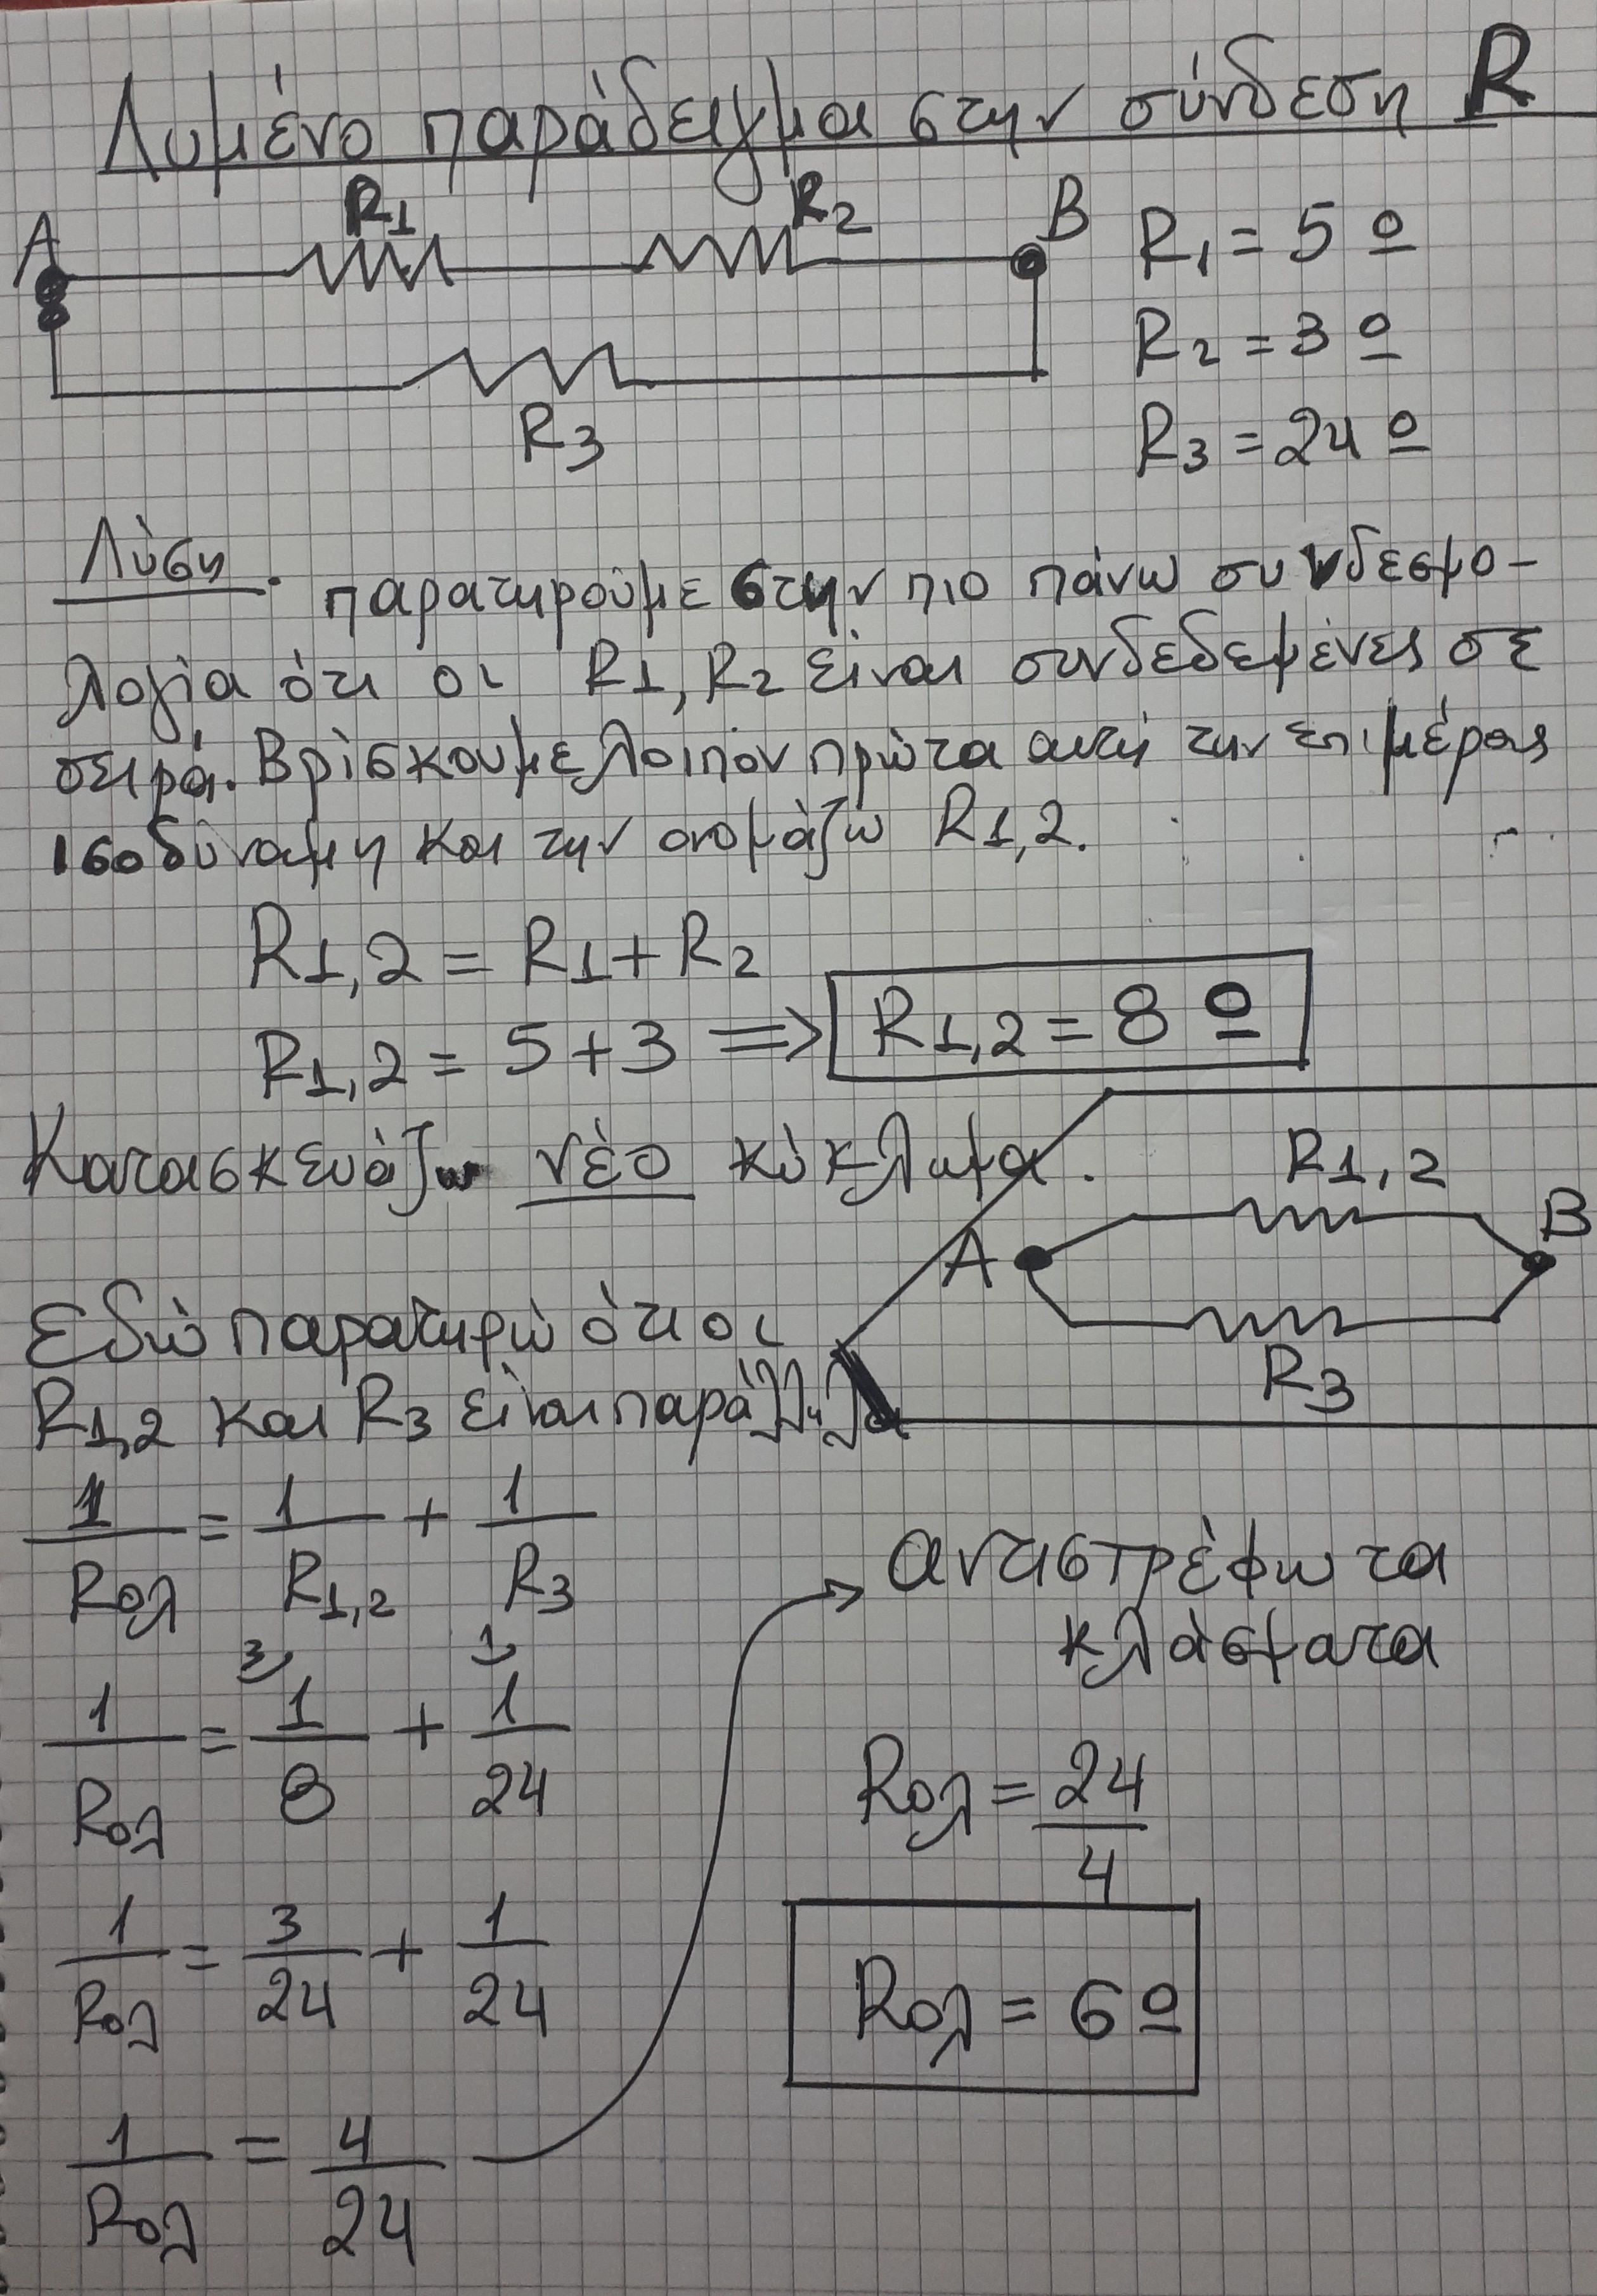 Λυμένο παράδειγμα στην σύνδεση R
A R1 R2 B
R1 = 5 Ω
R2 = 3 Ω
R3 = 24 Ω
R3
Λύση. παρατηρούμε στην πιο πάνω συνδεσμο-
λογία ότι οι R1, R2 είναι συνδεδεμένες σε
σειρά. Βρίσκουμε λοιπόν πρώτα αυτή την επιμέρους
ισοδύναμη και την ονομάζω R1,2.
R1,2 = R1 + R2
R1,2 = 5 + 3 => R1,2 = 8 Ω
Κατασκευάζω νέο κύκλωμα.
R1,2
A B
R3
Εδώ παρατηρώ ότι οι
R1,2 και R3 είναι παράλληλα
1/Rολ = 1/R1,2 + 1/R3
3 1
1/Rολ = 1/8 + 1/24
1/Rολ = 3/24 + 1/24
1/Rολ = 4/24
αντιστρέφω τα
κλάσματα
Rολ = 24/4
Rολ = 6 Ω